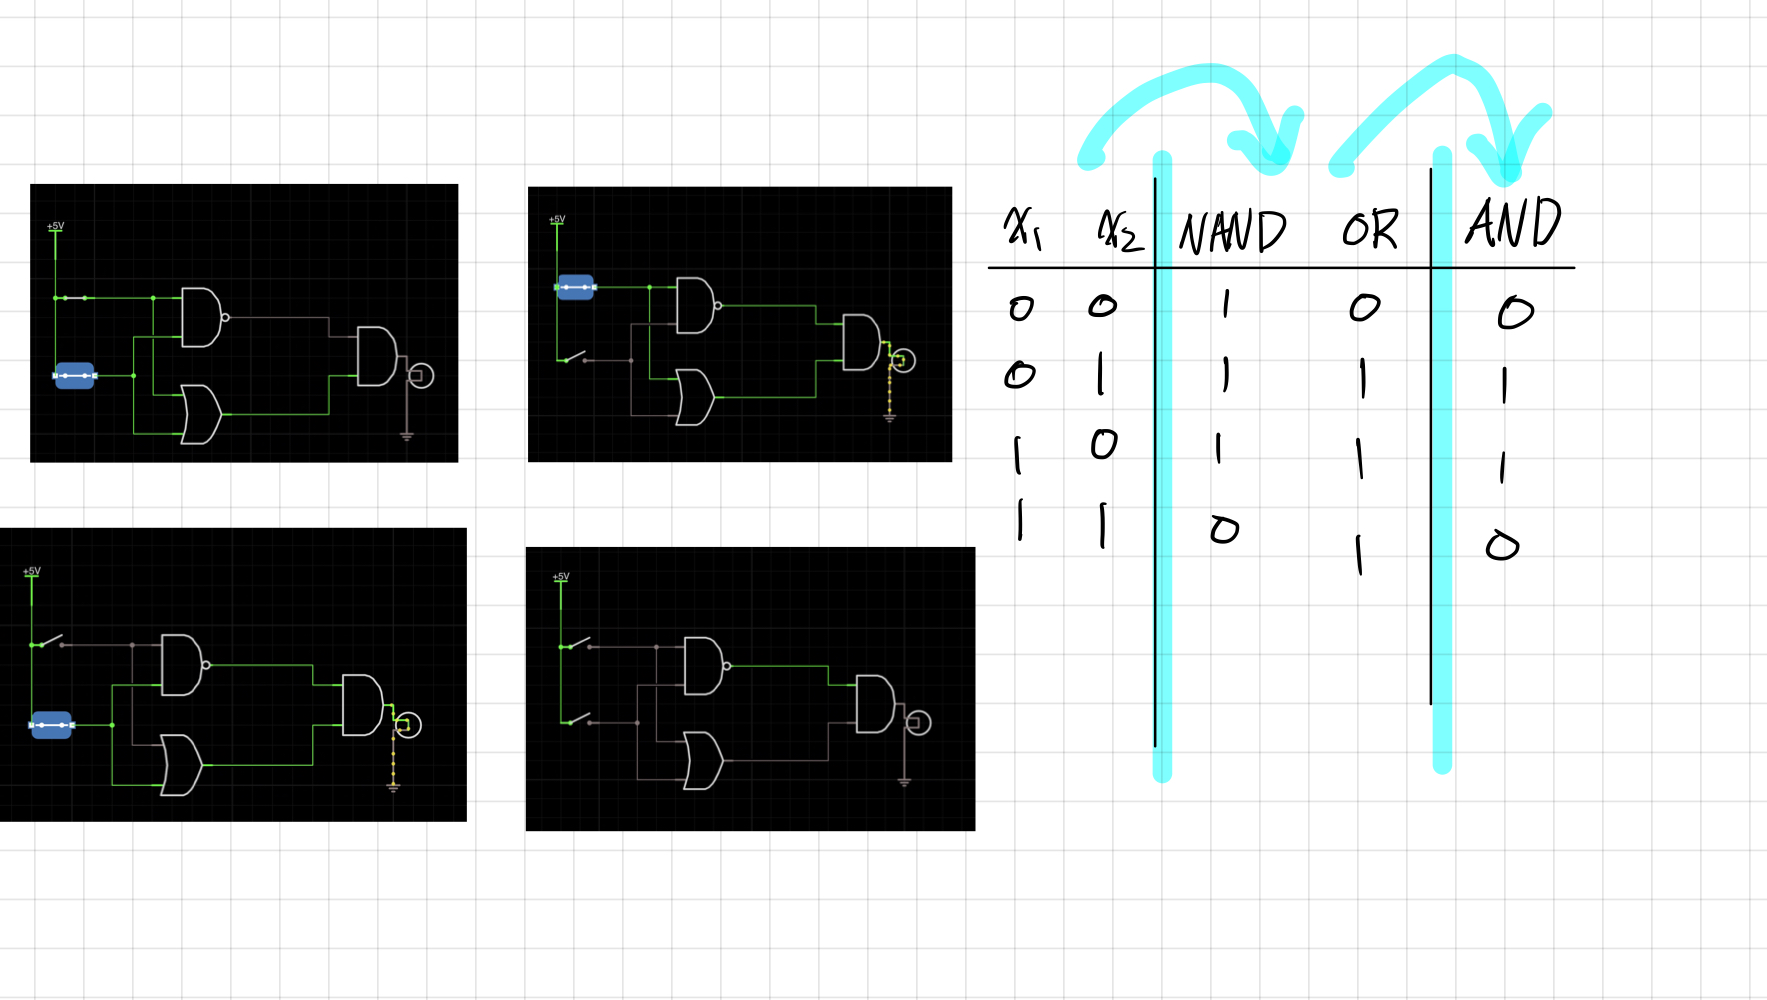 +5V
+5V
+5V
+5V
x₁ x₂ NAND OR AND
0 0 1 0 0
0 1 1 1 1
1 0 1 1 1
1 1 0 1 0